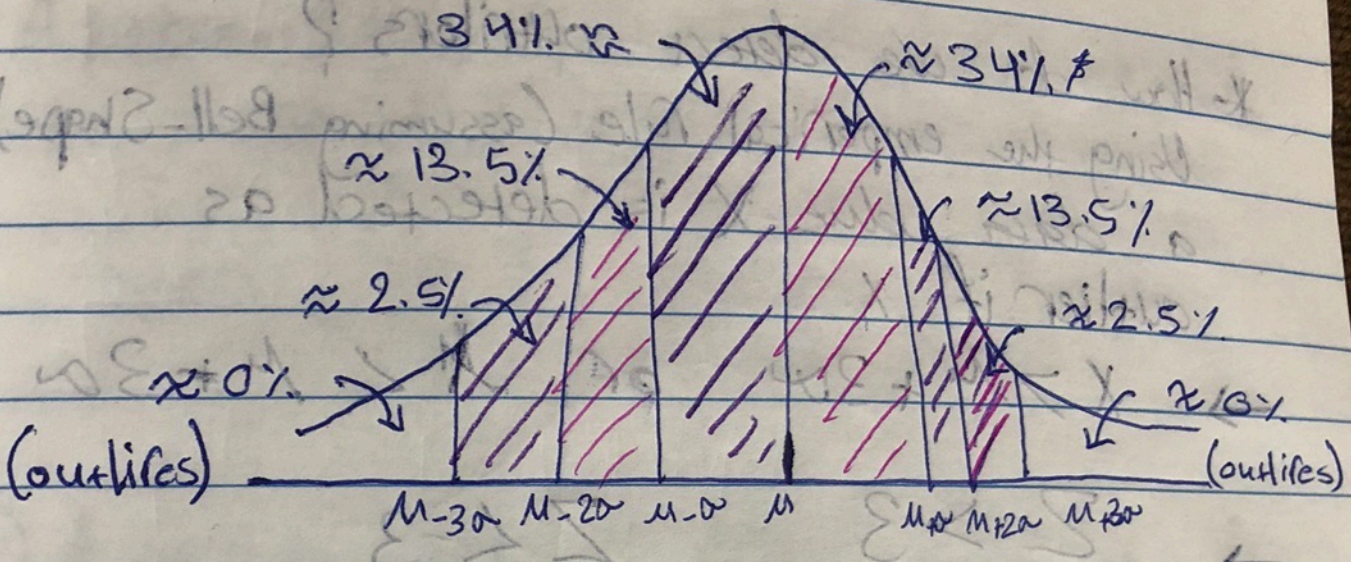 34%
≈ 34%
≈ 13.5%
≈ 13.5%
≈ 2.5%
≈ 2.5%
≈ 0%
≈ 0%
(outlires)
(outlires)
μ-3σ μ-2σ μ-σ μ μ+σ μ+2σ μ+3σ